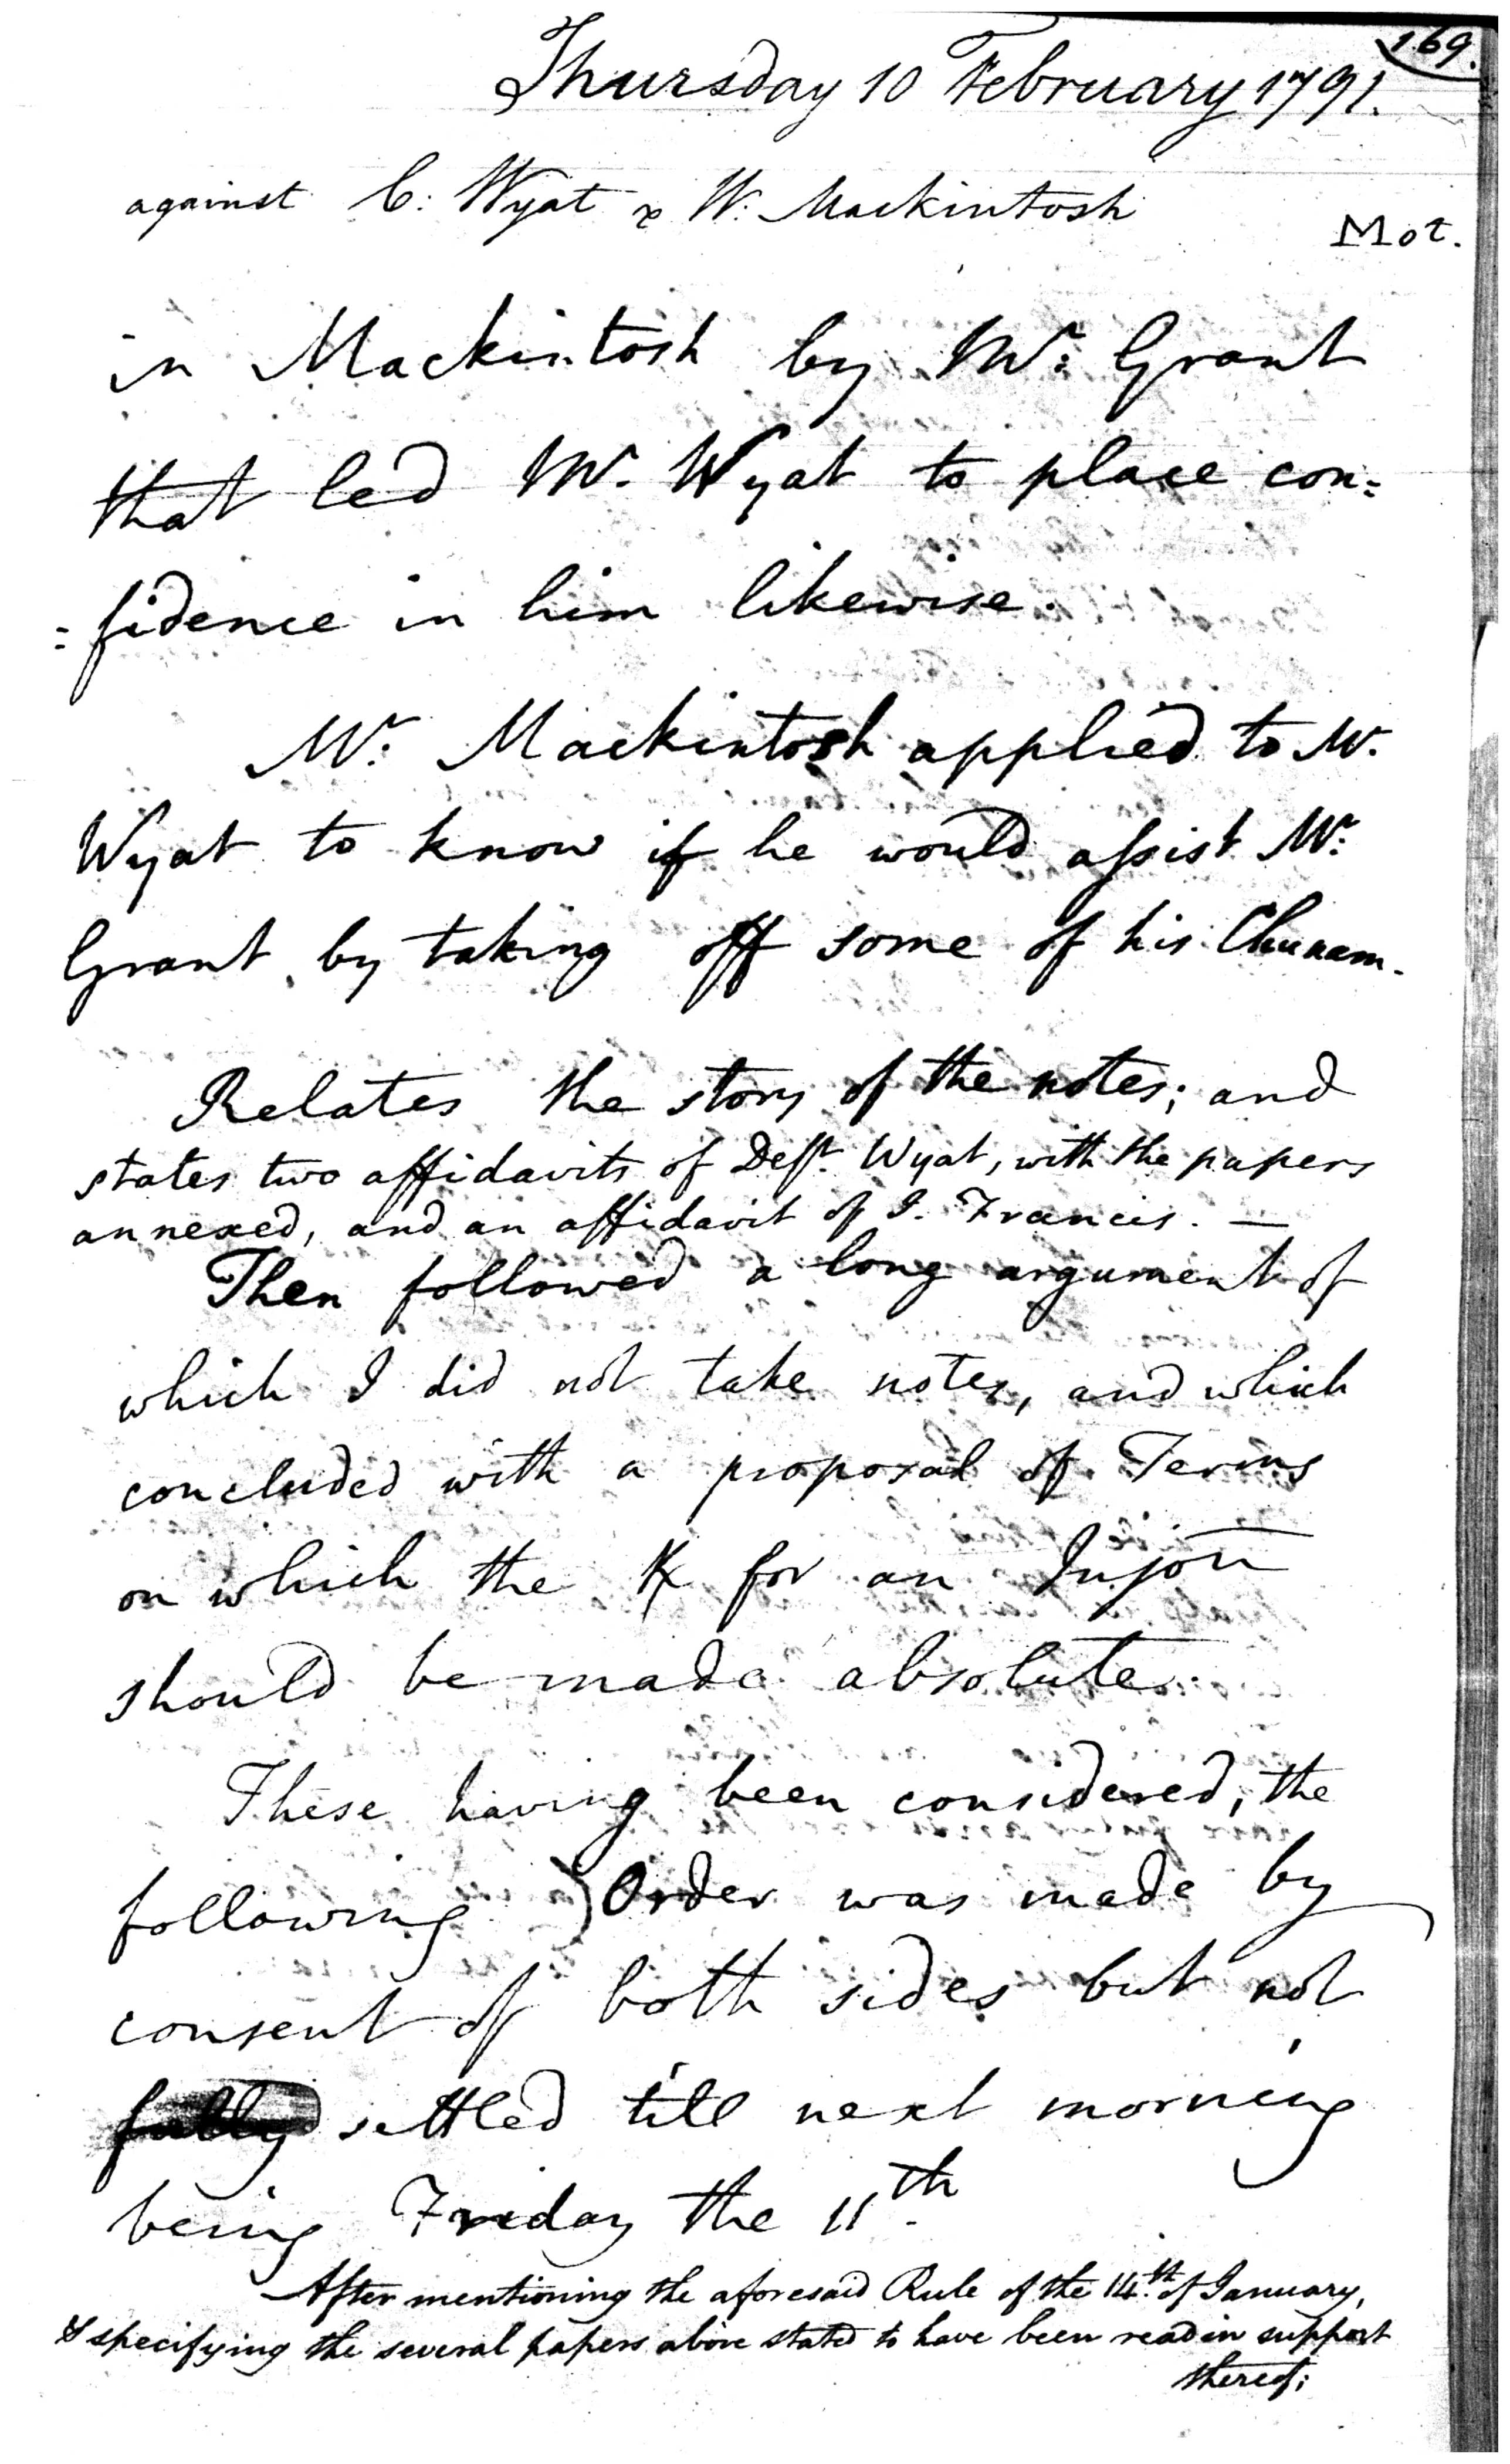 169.
Thursday 10 February 1791.
against C: Wyat & W: Mackintosh
Mot.
in Mackintosh by Mr: Grant
that led Mr. Wyat to place con=
=fidence in him likewise.
Mr: Mackintosh applied to Mr.
Wyat to know if he would assist Mr:
Grant by taking off some of his Chunam.
Relates the story of the notes; and
states two affidavits of Deft. Wyat, with the papers
annexed, and an affidavit of J. Francis. —
Then followed a long argument of
which I did not take notes, and which
concluded with a proposal of Terms
on which the for an Injon
should be made absolute.
These having been considered, the
following Order was made by
consent of both sides but not
fully settled till next morning
being Friday the 11th.
After mentioning the aforesaid Rule of the 14th. of January,
& specifying the several papers above stated to have been read in support
thereof;